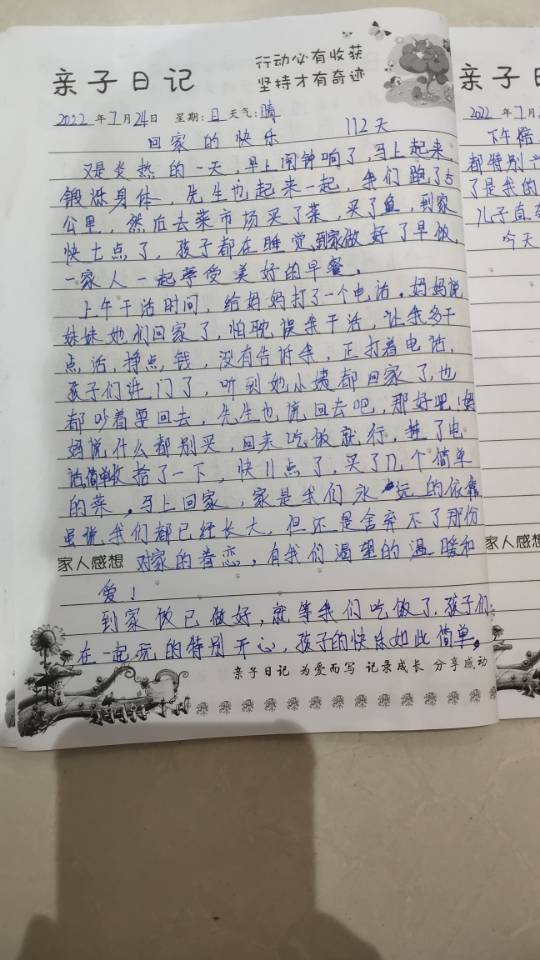 行动必有收获
亲子日记 坚持才有奇迹
2022年7月24日 星期:日 天气:晴
回家的快乐 112天
又是炎热的一天,早上闹钟响了,马上起来,
锻炼身体,先生也起来一起,我们跑了5
公里,然后去菜市场买了菜,买了鱼,到家
快七点了,孩子都在睡觉,到家做好了早饭,
一家人一起享受美好的早餐。
上午干活时间,给妈妈打了一个电话,妈妈说
妹妹她们回家了,怕耽误我干活,让我多干
点活,挣点钱,没有告诉我,正打着电话,
孩子们进门了,听到她小姨都回家了,也
都吵着要回去,先生也说回去吧,那好吧!妈
妈说什么都别买,回来吃饭就行,挂了电
话,简单收拾了一下,快11点了,买了几个简单
的菜,马上回家,家是我们永远的依靠
虽说,我们都已经长大,但还是舍弃不了那份
家人感想 对家的眷恋,有我们渴望的温暖和
爱!
到家饭已做好,就等我们吃饭了,孩子们
在一起玩的特别开心,孩子的快乐如此简单。
亲子日记 为爱而写 记录成长 分享感动
亲子日
2022年7月
下午
都特别
了是我的
儿子直
今天
家人感想